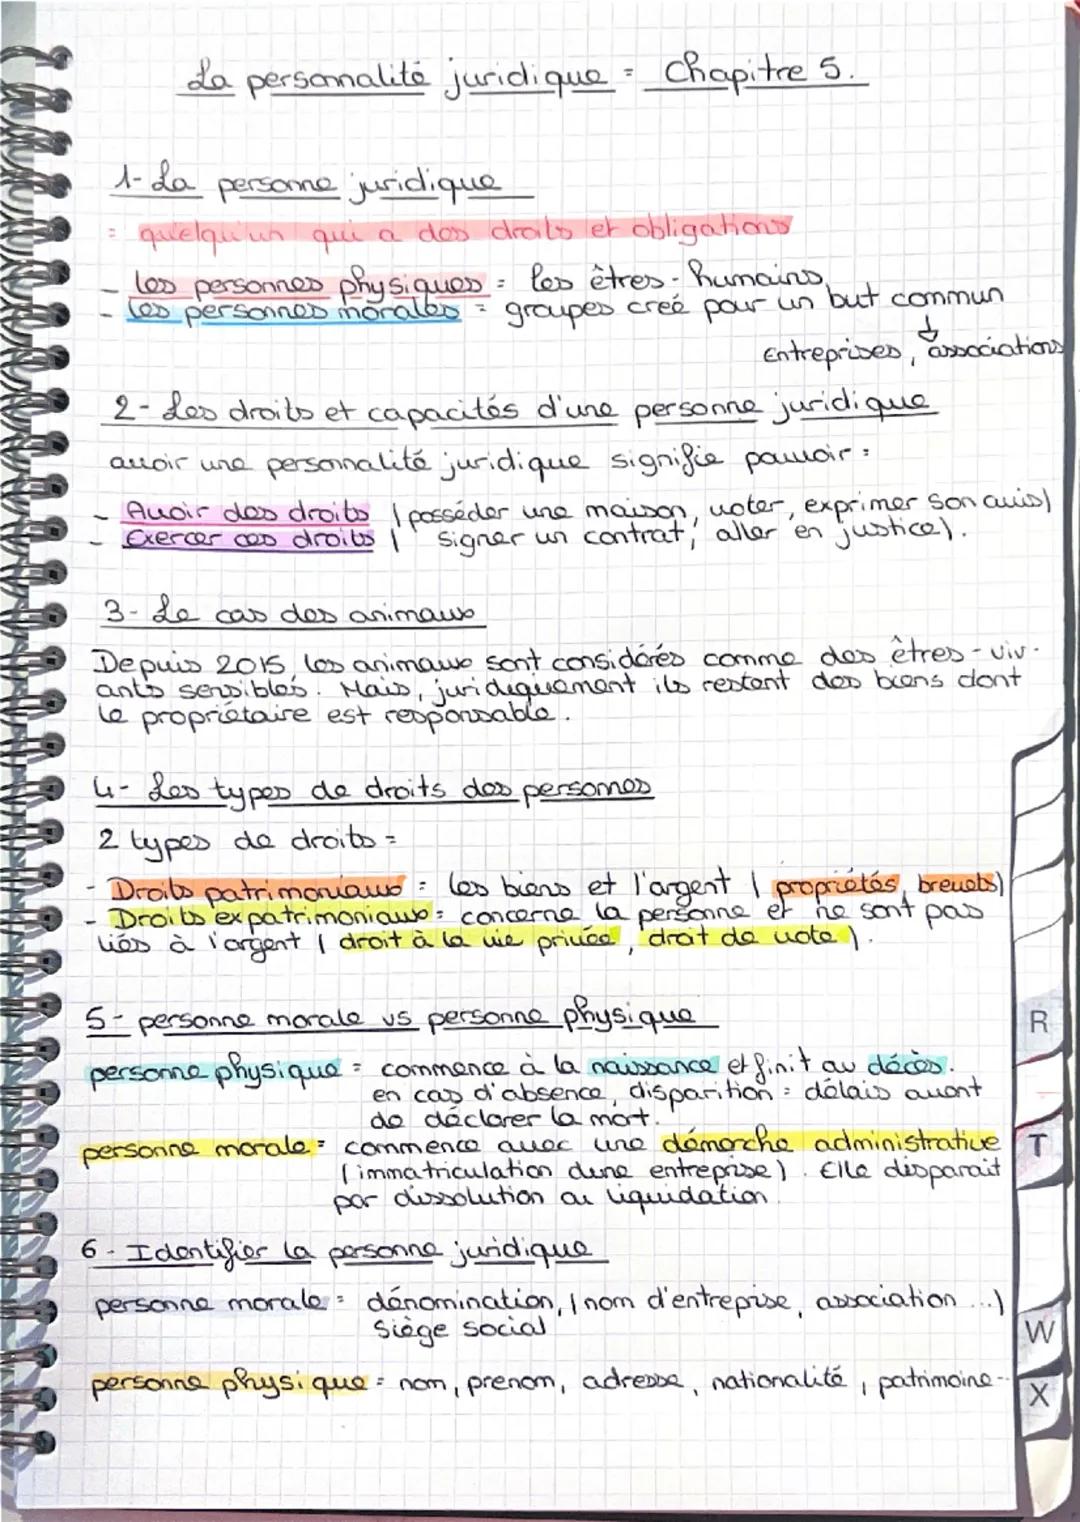 La personnalité juridique = Chapitre 5.
1- La personne juridique
= quelqu'un qui a des droits et obligations
- les personnes physiques = les êtres-humains,
- les personnes morales = groupes creé pour un but commun
↓
entreprises, associations
2- Les droits et capacités d'une personne juridique
avoir une personnalité juridique signifie pouvoir :
- Avoir des droits (posséder une maison, voter, exprimer son avis)
- Exercer ces droits ( signer un contrat, aller en justice).
3- Le cas des animaux
Depuis 2015 les animaux sont considérés comme des êtres-viv-
ants sensibles. Mais, juridiquement ils restent des biens dont
le propriétaire est responsable.
4- Les types de droits des personnes
2 types de droits =
- Droits patrimoniaux : les biens et l'argent ( propriétés, brevets)
- Droits expatrimoniaux : concerne la personne et ne sont pas
liés à l'argent ( droit à la vie privée, droit de vote ).
5- personne morale vs personne physique
personne physique = commence à la naissance et finit au décès.
en cas d'absence, disparition = délais avant
de déclarer la mort.
personne morale = commence avec une démarche administrative
(immatriculation dune entreprise). Elle disparait
par dissolution ou liquidation.
6- Identifier la personne juridique
personne morale = dénomination, (nom d'entreprise, association ...)
siège social
personne physique = nom, prenom, adresse, nationalité, patrimoine..
R
T
W
X